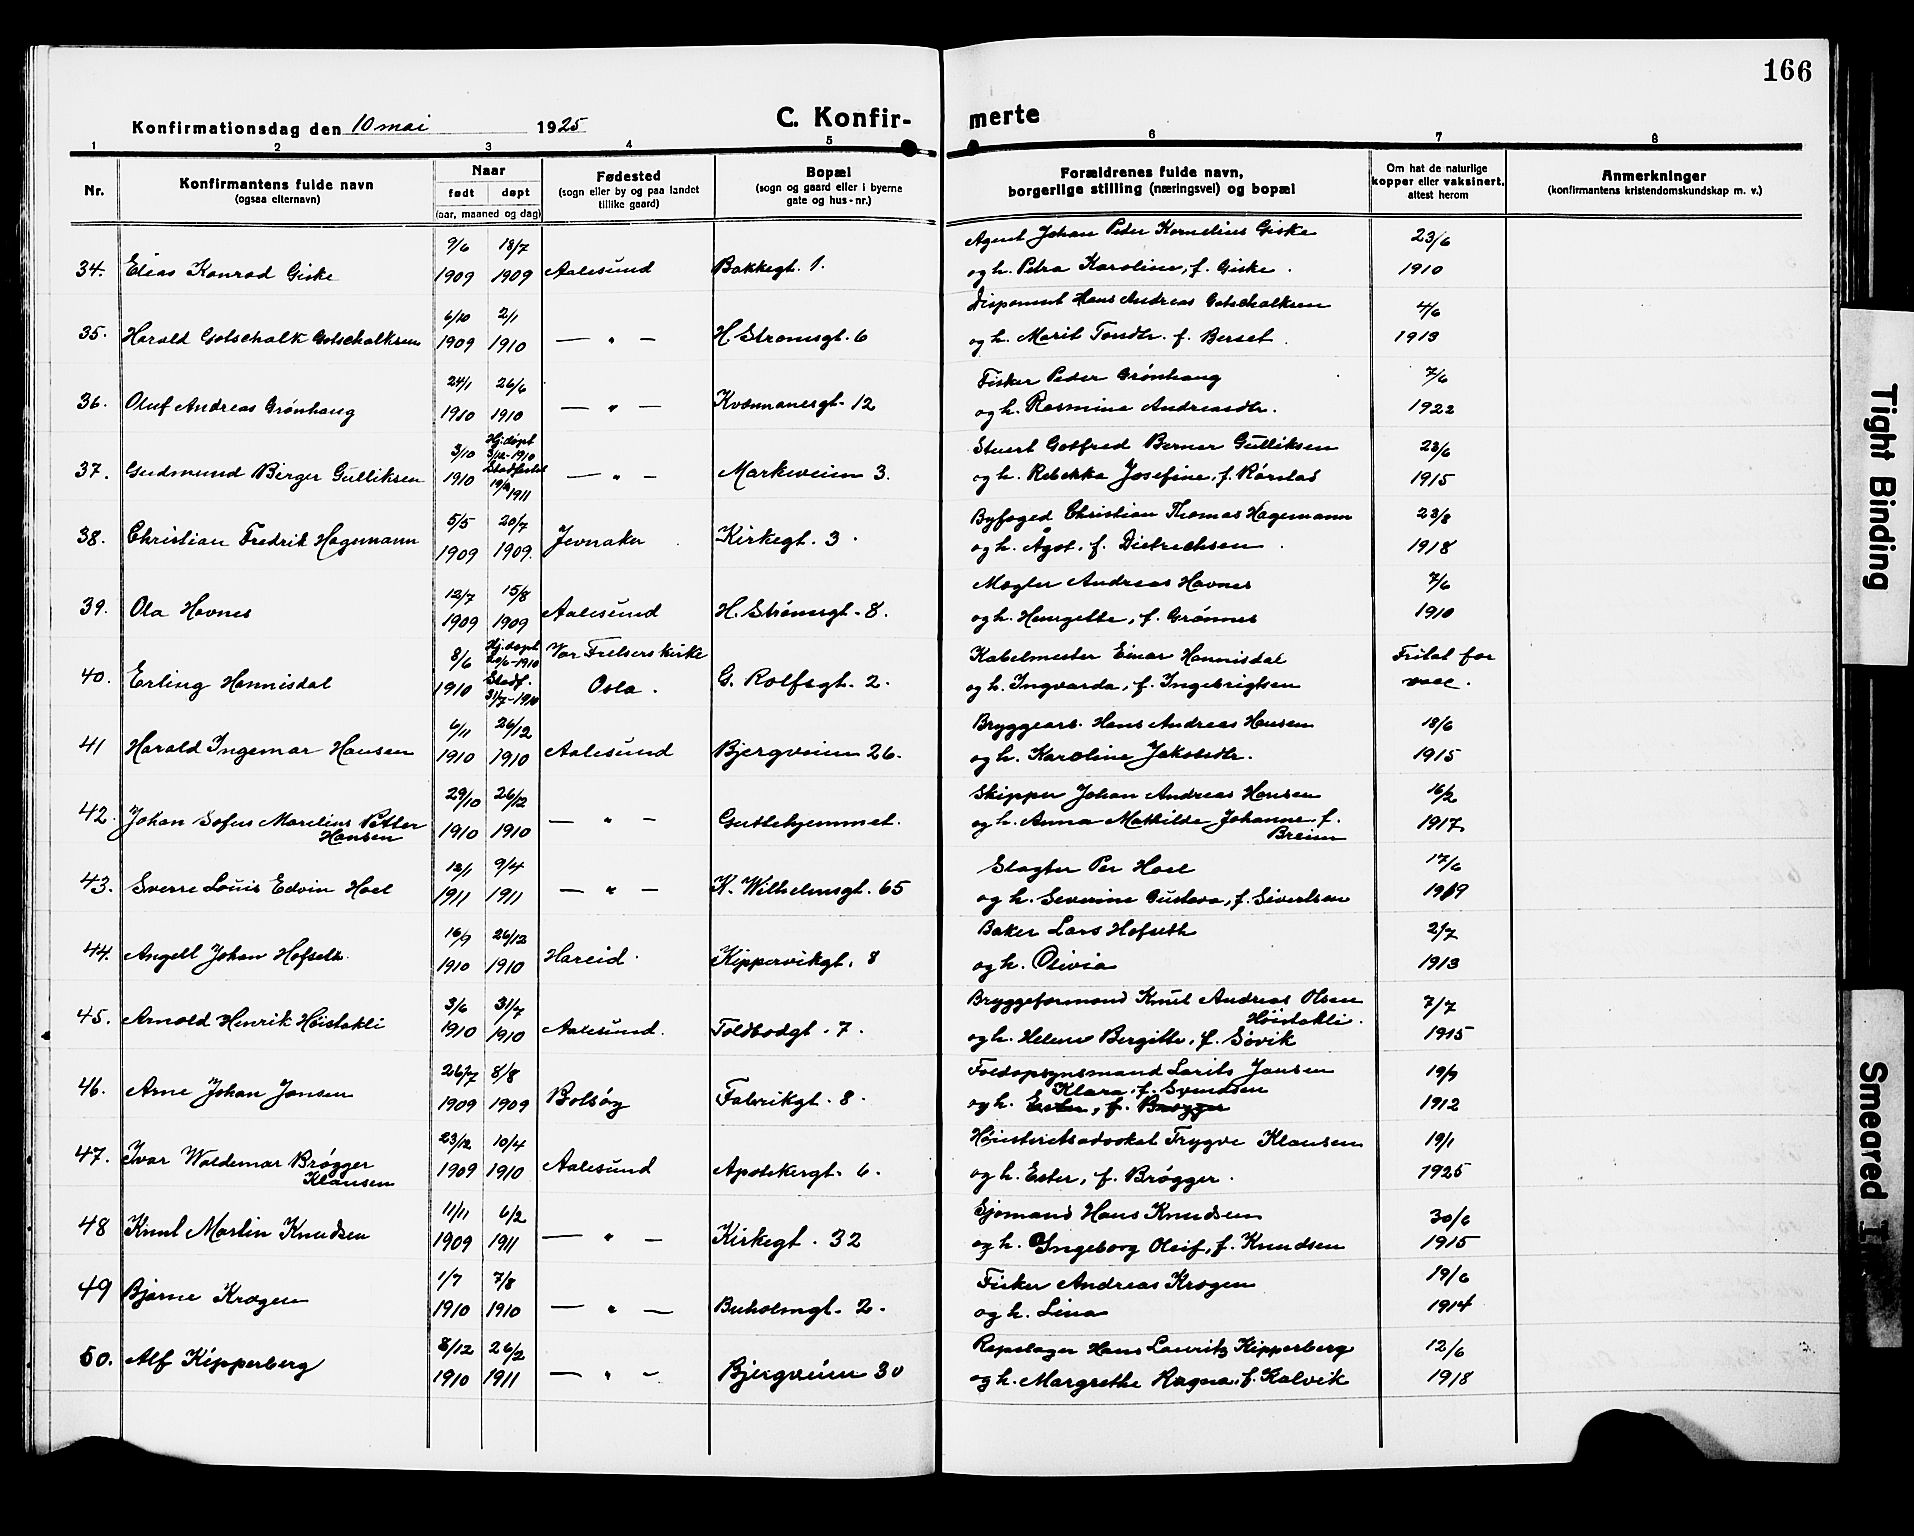 166
Konfirmationsdag den 10 mai 1925
C. Konfir-
merte
1 2 3 4 5 6 7 8
Nr.
Konfirmantens fulde navn
(ogsaa elternavn)
Naar
født døpt
(aar, maaned og dag)
Fødested
(sogn eller by og paa landet
tillike gaard)
Bopæl
(sogn og gaard eller i byerne
gate og hus-nr.)
Forældrenes fulde navn,
borgerlige stilling (næringsvei) og bopæl
Om hat de naturlige
kopper eller vaksinert,
altest herom
Anmerkninger
(konfirmantens kristendomskundskap m. v.)
9/6 18/7 Agent Johan Peder Kornelius Giske 23/6
34. Elias Konrad Giske 1909 1909 Aalesund Bakkegt. 1. og h. Petra Karoline, f. Giske. 1910
6/10 2/1 Disponent Hans Andreas Gotschalksen 4/6
35. Harald Gotschalk Gotschalksen 1909 1910 — " — H. Strømsgt. 6 og h. Marit Tondtr. f. Berset. 1913
24/1 26/6 Fisker Peder Grønhaug 7/6
36. Oluf Andreas Grønhaug 1910 1910 — " — Kvennanesgt. 12 og h. Rasmine Andreasdtr. 1922
3/10 Hj. døpt 3/12-1910 Stuert Gotfred Berner Gulliksen 23/6
37. Gudmund Birger Gulliksen 1910 Stadfestet 1911 — " — Markeveien 3. og h. Rebekka Josefine, f. Rørstad 1915
5/5 20/7 Byfoged Christian Thomas Hagemann 23/8
38. Christian Fredrik Hagemann 1909 1909. Jevnaker Kirkegt. 3. og h. Ågot, f. Dietrichsen. 1918
12/7 15/8 Mægler Andreas Havnes 7/6
39. Ola Havnes 1909 1909 Aalesund H. Strømsgt. 8. og h. Henrgette, f. Grønnes 1910
8/6 Hj. døpt -1910 Vor Frelsers kirke Kabelmester Einar Hannisdal Fritat for
40. Erling Hannisdal 1910 Stadf. 31/7-1910 Oslo. G. Rolfsgt. 2. og h. Ingvarda, f. Ingebrigtsen vacc.
6/11 26/12 Bryggearb. Hans Andreas Hansen 18/6
41 Harald Ingemar Hansen 1910 1910 Aalesund Bjergveien 26. og h. Karoline Jakobsdtr. 1915
29/10 26/12 Skipper Johan Andreas Hansen 16/2
42. Johan Sofus Marelius Petter 1910 1910 — " — Guttehjemmet. og h. Anna Mathilde Johanne f. 1917
Hansen Breien
12/1 9/4 Slagter Per Hoel 17/6
43. Sverre Louis Edvin Hoel 1911 1911 — " — K. Wilhelmsgt. 65 og h. Severine Gustava, f. Sivertsen 1919
16/9 26/12 Baker Lars Hofseth 2/7
44. Angell Johan Hofseth. 1910 1910 Hareid. Kippervikgt. 8 og h. Olivia 1913
3/6 31/7 Bryggeformand Knut Andreas Olsen 7/7
45. Arnold Henrik Høistakli 1910 1910 Aalesund. Toldbodgt. 7. Høistakli.
og h. Helene Bergitte, f. Søvik 1915
26/7 8/8 Foldopsynsmand Lorits Jansen 19/9
46. Arne Johan Jansen 1909 1909 Bolsøy Fabrikgt. 8. Klara, f. Svendsen
og h. Ester, f. Brøgger 1912
23/12 10/4 Høiesteretsadvokat Trygve Klausen 19/1
47. Ivar Waldemar Brøgger 1909 1910 Aalesund Apotekergt. 6. og h. Ester, f. Brøgger. 1925
Klausen
11/11 6/2 Sjømand Hans Knudsen 30/6
48 Knut Martin Knudsen 1909 1911 — " — Kirkegt. 32 og h. Ingeborg Oleif, f. Knudsen 1915
1/7 7/8 Fisker Andreas Krogen 19/6
49 Bjarne Krogen 1910 1910 — " — Buholmgt. 2. og h. Lina 1914
8/12 26/2 Repslager Hans Lauritz Kipperberg 12/6
50. Alf Kipperberg 1910 1911 — " — Bjergveien 30 og h. Margrethe Ragna, f. Kalvik 1918
Tight Binding
Smeared I